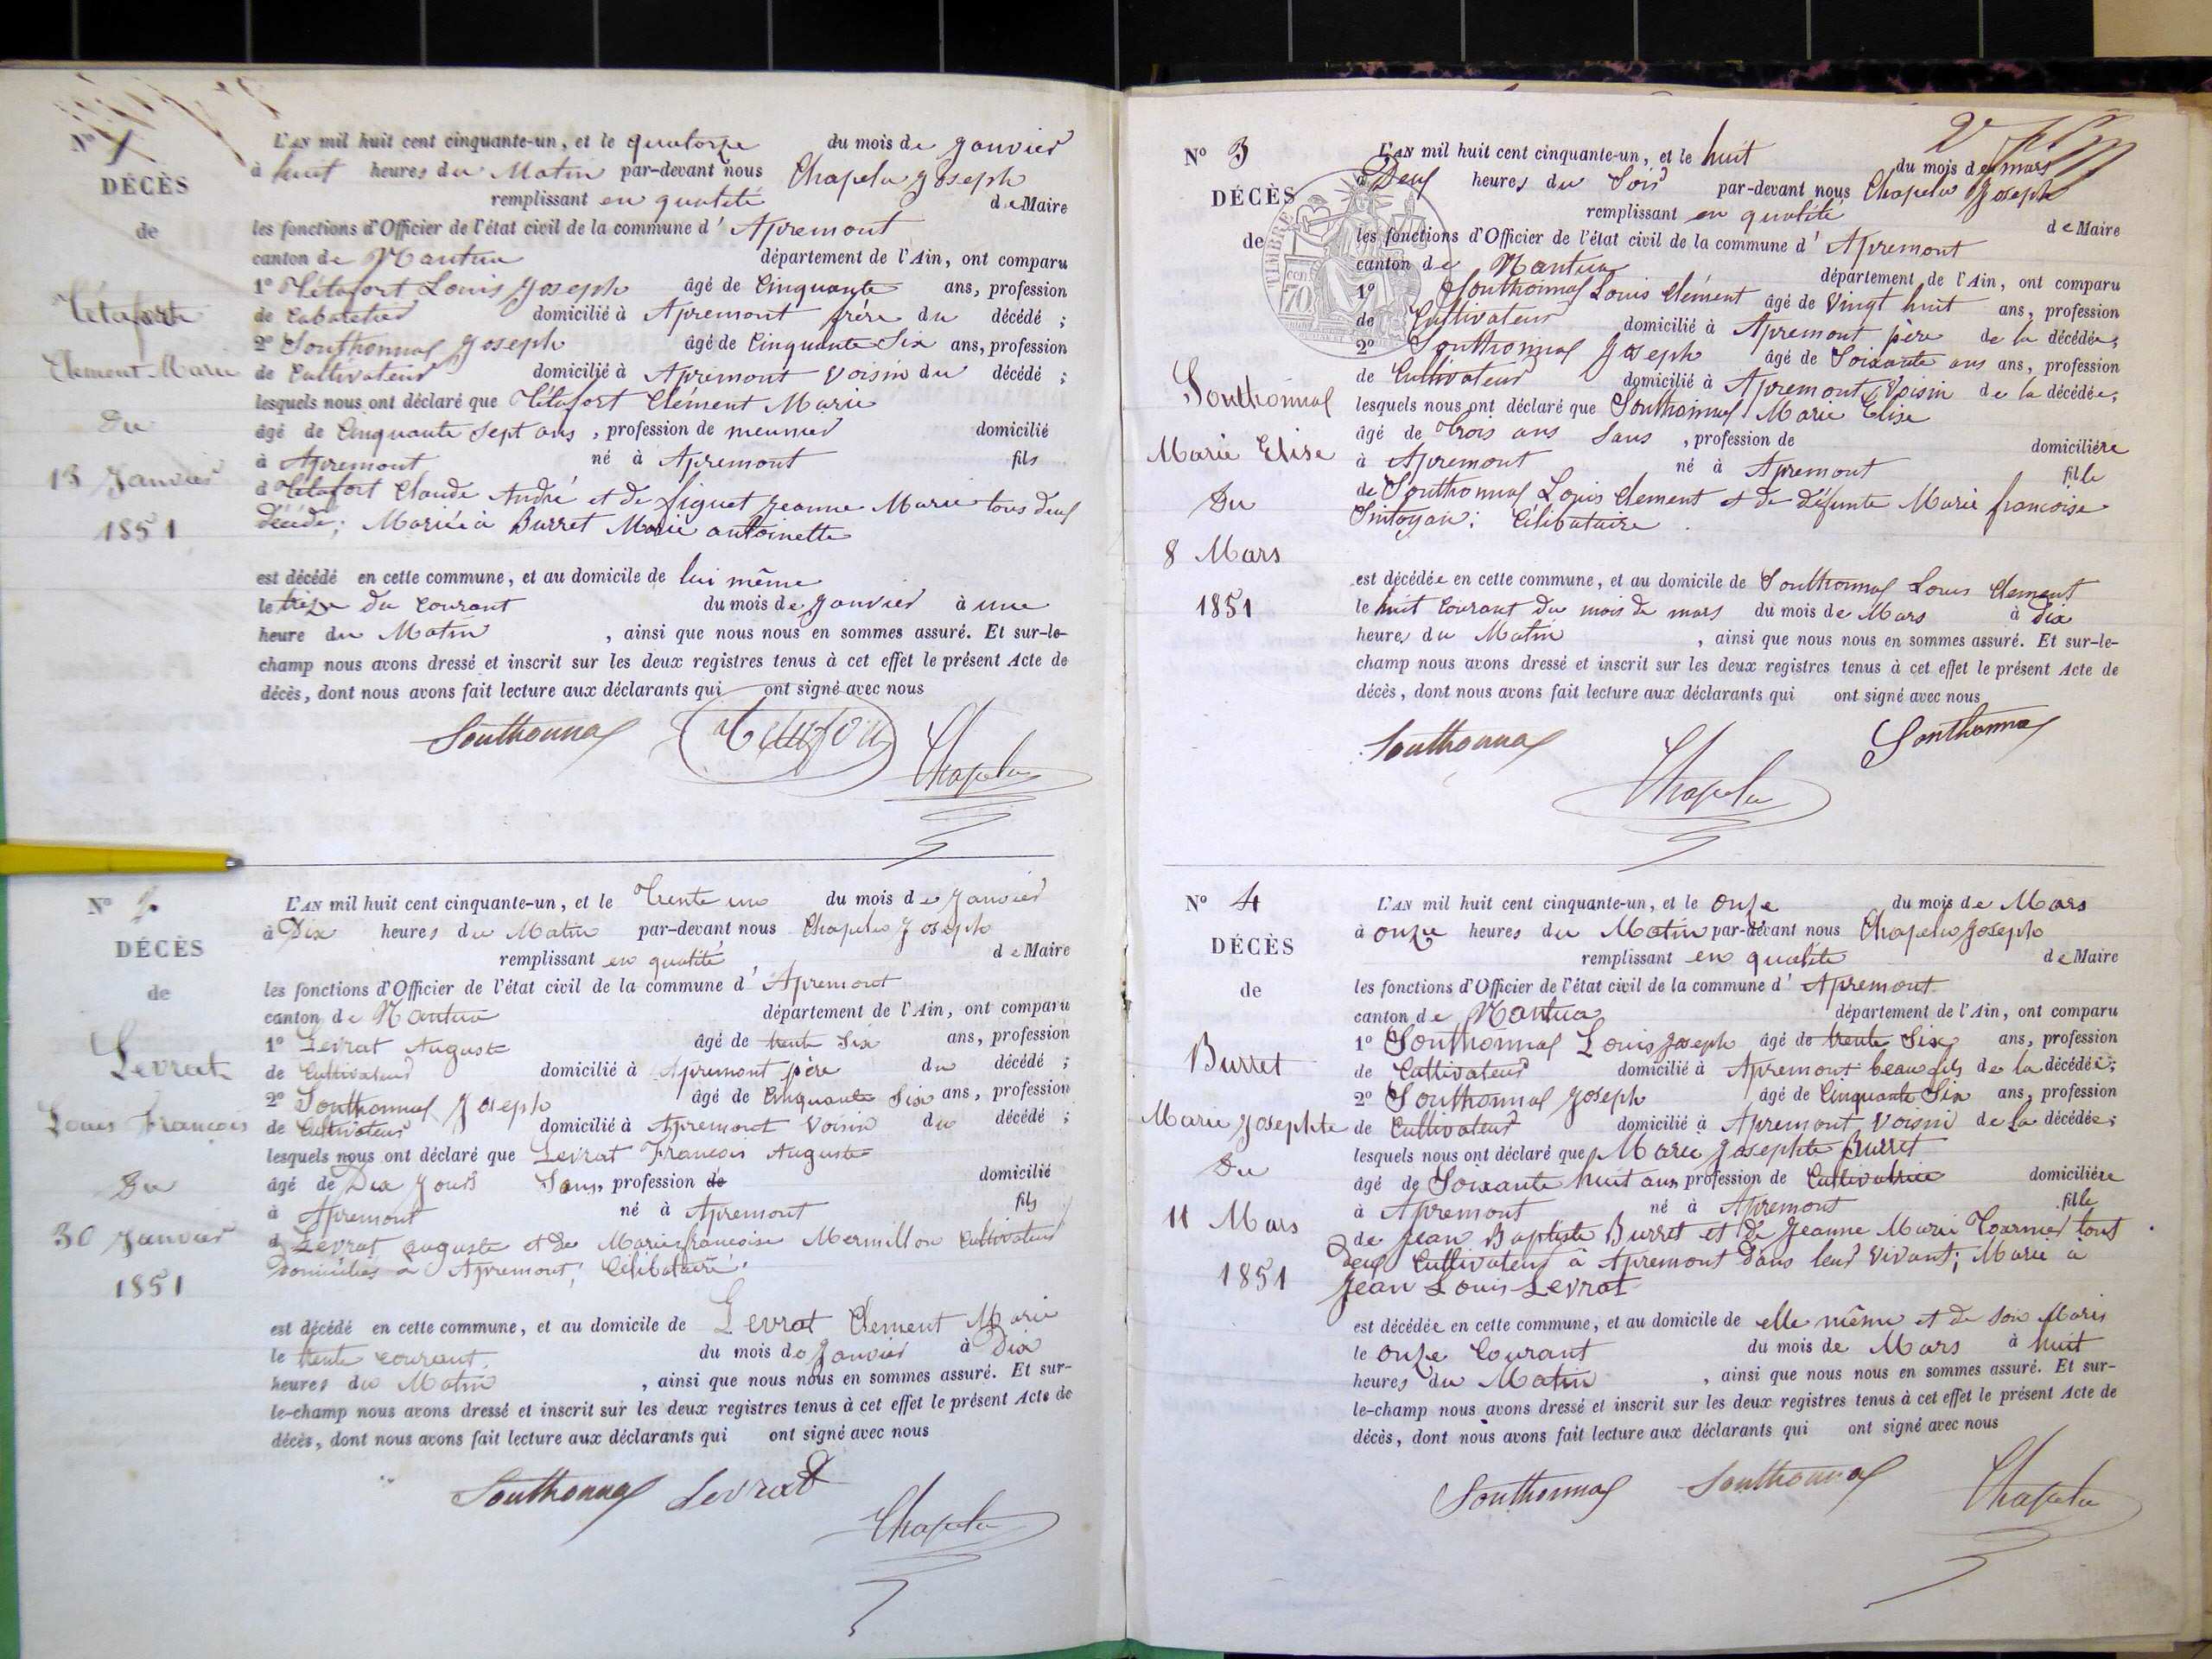 N° 1
DÉCÈS
de
Tétafort
Clément Marie
Du
13 Janvier
1851
L'AN mil huit cent cinquante-un, et le quatorze du mois de Janvier
à huit heures du Matin par-devant nous Chapelu Joseph
remplissant en qualité de Maire
les fonctions d'Officier de l'état civil de la commune d' Apremont
canton de Nantua département de l'Ain, ont comparu
1° Tétafort Louis Joseph âgé de Cinquante ans, profession
de Cabaretier domicilié à Apremont frère du décédé ;
2° Southonnax Joseph âgé de Cinquante Six ans, profession
de Cultivateur domicilié à Apremont Voisin du décédé ;
lesquels nous ont déclaré que Tétafort Clément Marie
âgé de Cinquante Sept ans , profession de meunier domicilié
à Apremont né à Apremont fils
d Tétafort Claude André et de Figuet Jeanne Marie tous deux
décédé; Mariée à Burret Marie antoinette
est décédé en cette commune, et au domicile de lui même
le treize du Courant du mois de Janvier à une
heure du Matin , ainsi que nous nous en sommes assuré. Et sur-le-
champ nous avons dressé et inscrit sur les deux registres tenus à cet effet le présent Acte de
décès, dont nous avons fait lecture aux déclarants qui ont signé avec nous
Southonnax Chapelu
N° 2
DÉCÈS
de
Levrat
Louis François
Du
30 Janvier
1851
L'AN mil huit cent cinquante-un, et le Trente un du mois de Janvier
à Dix heures du Matin par-devant nous Chapelu Joseph
remplissant en qualité de Maire
les fonctions d'Officier de l'état civil de la commune d' Apremont
canton de Nantua département de l'Ain, ont comparu
1° Levrat Auguste âgé de trente Six ans, profession
de Cultivateur domicilié à Apremont père du décédé ;
2° Southonnax Joseph âgé de Cinquante Six ans, profession
de Cultivateur domicilié à Apremont Voisin du décédé ;
lesquels nous ont déclaré que Levrat François Auguste
âgé de Dix Jours Sans, profession de domicilié
à Apremont né à Apremont fils
d Levrat auguste et de Marie françoise Mermillon Cultivateur
domiciliés à Apremont; Célibataire.
est décédé en cette commune, et au domicile de Levrat Clement Marie
le trente courant. du mois de Janvier à Dix
heures du Matin , ainsi que nous nous en sommes assuré. Et sur-
le-champ nous avons dressé et inscrit sur les deux registres tenus à cet effet le présent Acte de
décès, dont nous avons fait lecture aux déclarants qui ont signé avec nous
Southonnax Levrat Chapelu
N° 3
DÉCÈS
de
Southonnax
Marie Elise
Du
8 Mars
1851
TIMBRE
CEN 70
L'AN mil huit cent cinquante-un, et le huit du mois de mars
à Deux heures du Soir par-devant nous Chapelu Joseph
remplissant en qualité de Maire
les fonctions d'Officier de l'état civil de la commune d' Apremont
canton de Nantua département de l'Ain, ont comparu
1° Southonnax Louis Clément âgé de Vingt huit ans, profession
de Cultivateur domicilié à Apremont père de la décédée;
2° Southonnax Joseph âgé de Soixante ans ans, profession
de Cultivateur domicilié à Apremont Voisin de la décédée;
lesquels nous ont déclaré que Southonnax Marie Elise
âgé de Trois ans Sans , profession de domiciliére
à Apremont né à Apremont fille
de Southonnax Louis Clement et de Défunte Marie françoise
Sintoyan: Célibataire.
est décédée en cette commune, et au domicile de Southonnax Louis Clement
le huit Courant du mois de mars du mois de Mars à Dix
heures du Matin , ainsi que nous nous en sommes assuré. Et sur-le-
champ nous avons dressé et inscrit sur les deux registres tenus à cet effet le présent Acte de
décès, dont nous avons fait lecture aux déclarants qui ont signé avec nous
Southonnax Chapelu Southonnax
N° 4
DÉCÈS
de
Burret
Marie Josephte
Du
11 Mars
1851
L'AN mil huit cent cinquante-un, et le onze du mois de Mars
à onze heures du Matin par-devant nous Chapelu Joseph
remplissant en qualité de Maire
les fonctions d'Officier de l'état civil de la commune d' Apremont
canton de Nantua département de l'Ain, ont comparu
1° Southonnax Louis Joseph âgé de trente Six ans, profession
de Cultivateur domicilié à Apremont beau fils de la décédée;
2° Southonnax Joseph âgé de Cinquante Six ans, profession
de Cultivateur domicilié à Apremont Voisin de la décédée;
lesquels nous ont déclaré que Marie Josephte Burret
âgé de Soixante huit ans, profession de Cultivatrice domiciliére
à Apremont né à Apremont fille
de Jean Baptiste Burret et de Jeanne Marie Tournier tout
deux Cultivateur à Apremont dans leur Vivant; Marie à
Jean Louis Levrat
est décédée en cette commune, et au domicile de elle même et de son Maris
le onze Courant du mois de Mars à huit
heures du Matin , ainsi que nous nous en sommes assuré. Et sur-
le-champ nous avons dressé et inscrit sur les deux registres tenus à cet effet le présent Acte de
décès, dont nous avons fait lecture aux déclarants qui ont signé avec nous
Southonnax Southonnax Chapelu